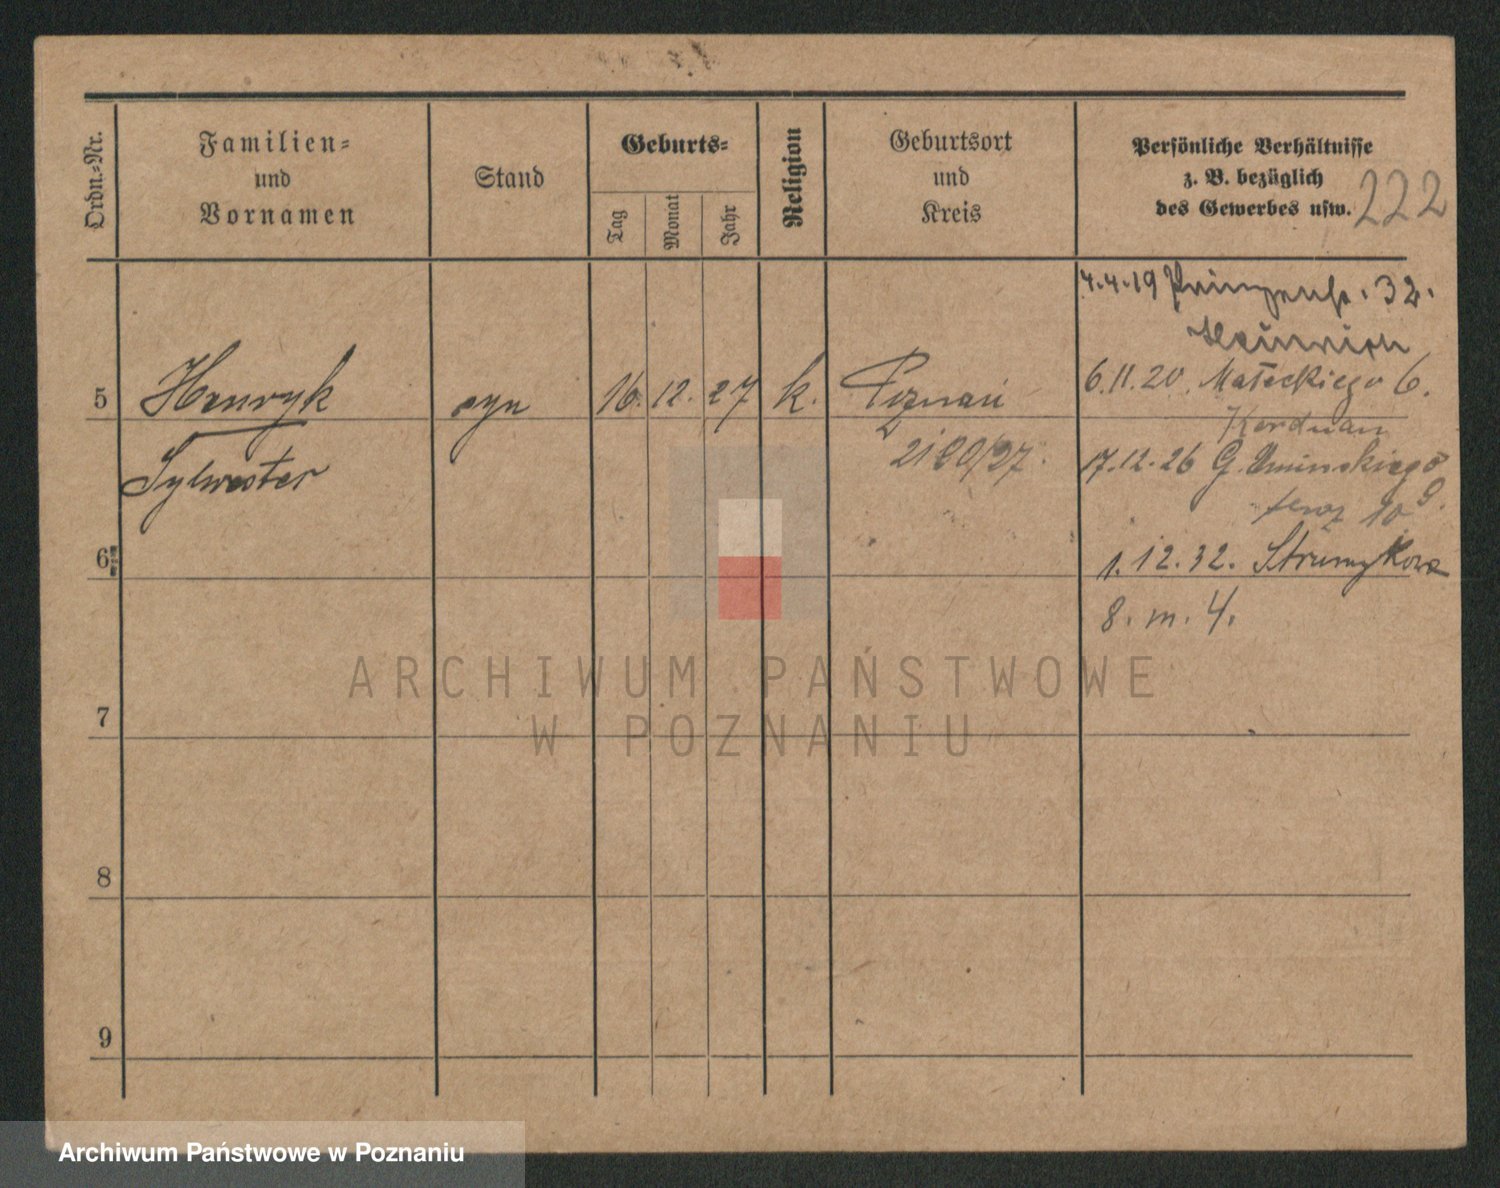 Ordn.-Nr.
Familien-
und
Vornamen
Stand
Geburts-
Tag
Monat
Jahr
Religion
Geburtsort
und
Kreis
Persönliche Verhältnisse
z. B. bezüglich
des Gewerbes usw.
222
4.4.19 Prinzenstr. 32.
Heinrich
5 Henryk syn 16. 12. 27 k. Poznań
6.11.20 Małeckiego 6.
Korduan
Sylwester
2180/27.
17.12.26 G. Umińskiego 9.
teraz 10
6
1.12.32. Strumykowa
8. m. 4.
7
8
9
ARCHIWUM PAŃSTWOWE
W POZNANIU
Archiwum Państwowe w Poznaniu